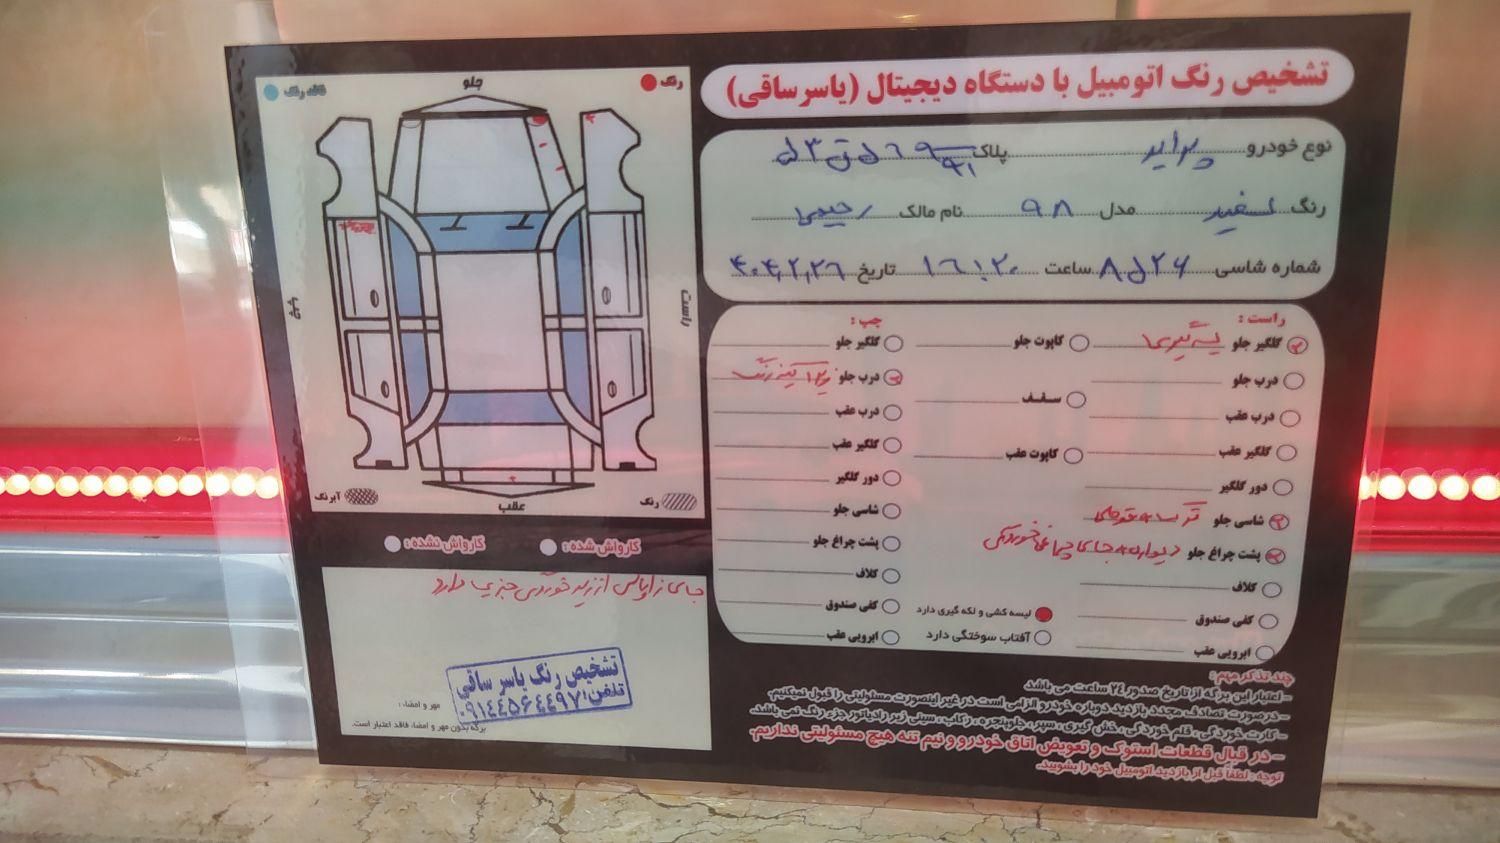 تشخیص رنگ اتومبیل با دستگاه دیجیتال (یاسر ساقی)
نوع خودرو پراید پلاک
رنگ سفید مدل ۹۸ نام مالک رحیمی
شماره شاسی ساعت ۱۶:۲۰ تاریخ ۴۰۴,۲,۲۶
رنگ
جلو
فاقد رنگ
راست
چپ
عقب
رنگ
آبرنگ
کارواش شده :
کارواش نشده :
راست :
گلگیر جلو لیسه گیری
درب جلو
درب عقب
گلگیر عقب
دور گلگیر
شاسی جلو
پشت چراغ جلو دیواره جای چراغ خوردگی
کلاف
کفی صندوق
ابرویی عقب
کاپوت جلو
سقف
کاپوت عقب
لیسه کشی و لکه گیری دارد
آفتاب سوختگی دارد
چپ :
گلگیر جلو
درب جلو رنگ
درب عقب
گلگیر عقب
دور گلگیر
شاسی جلو
پشت چراغ جلو
کلاف
کفی صندوق
ابرویی عقب
جای زاپاس از زیر خوردگی جزیی دارد
تشخیص رنگ یاسر ساقی
تلفن: ۰۹۱۴۴۵۶۴۴۹۷
مهر و امضاء :
برگه بدون مهر و امضاء فاقد اعتبار است.
چند تذکر مهم :
– اعتبار این برگه از تاریخ صدور ۲۴ ساعت می باشد
– در صورت تصادف مجدد بازدید دوباره خودرو الزامی است در غیر اینصورت مسئولیتی را قبول نمیکنیم.
– کارت خوردگی ، قلم خوردگی ، خش گیری ، سپر ، جلوپنجره ، رکاب ، سینی زیر رادیاتور جزء رنگ نمی باشد.
– در قبال قطعات استوک و تعویض اتاق خودرو و نیم تنه هیچ مسئولیتی نداریم.
توجه : لطفاً قبل از بازدید اتومبیل خود را بشویید.